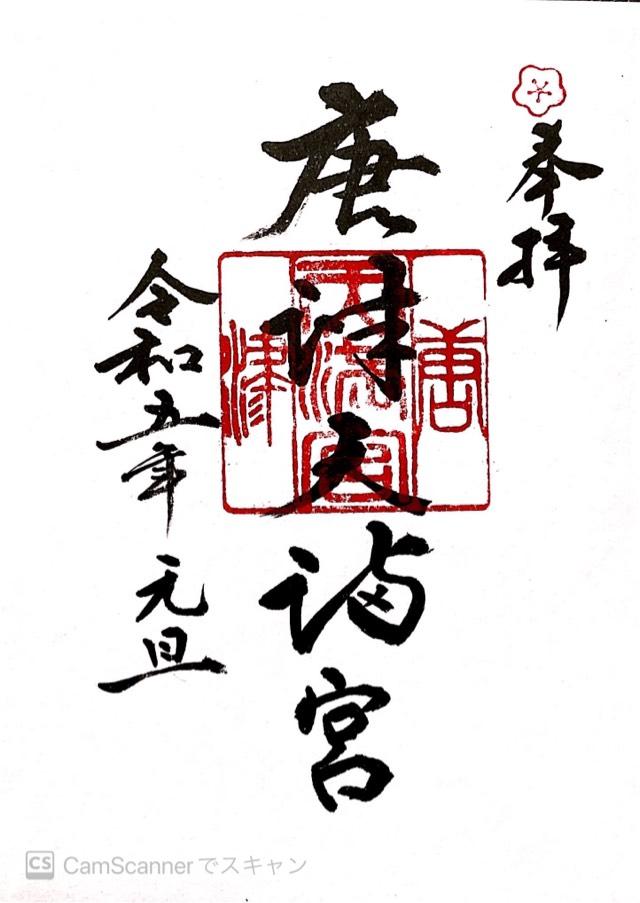 奉拝
唐津天満宮
唐
天満宮
津
令和五年 元旦
CS CamScannerでスキャン